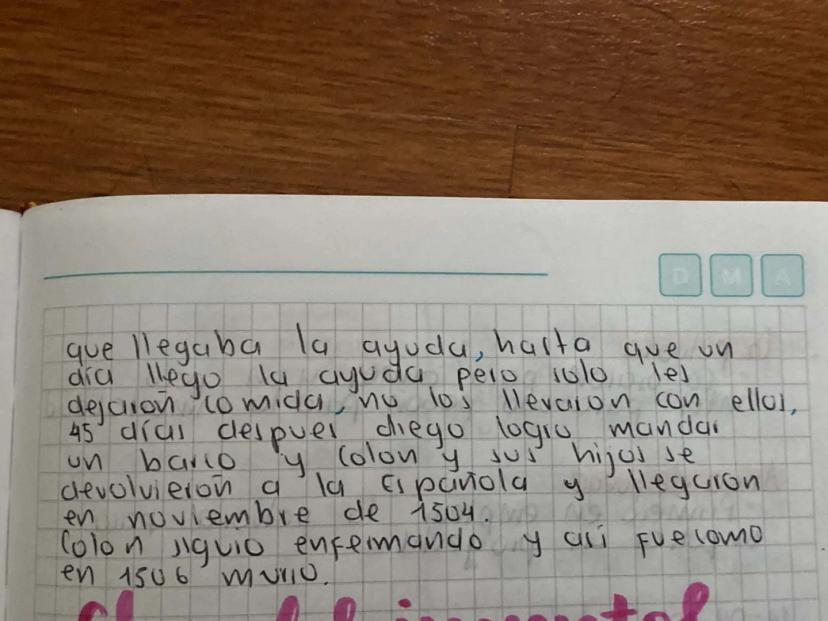 D M A
que llegaba la ayuda, hasta que un
día llego la ayuda pero solo les
dejaron comida, no los llevaron con ellos,
45 días despues diego logro mandar
un barco y Colon y sus hijos se
devolvieron a la Española y llegaron
en noviembre de 1504.
Colon siguio enfermando y asi fue como
en 1506 murio.